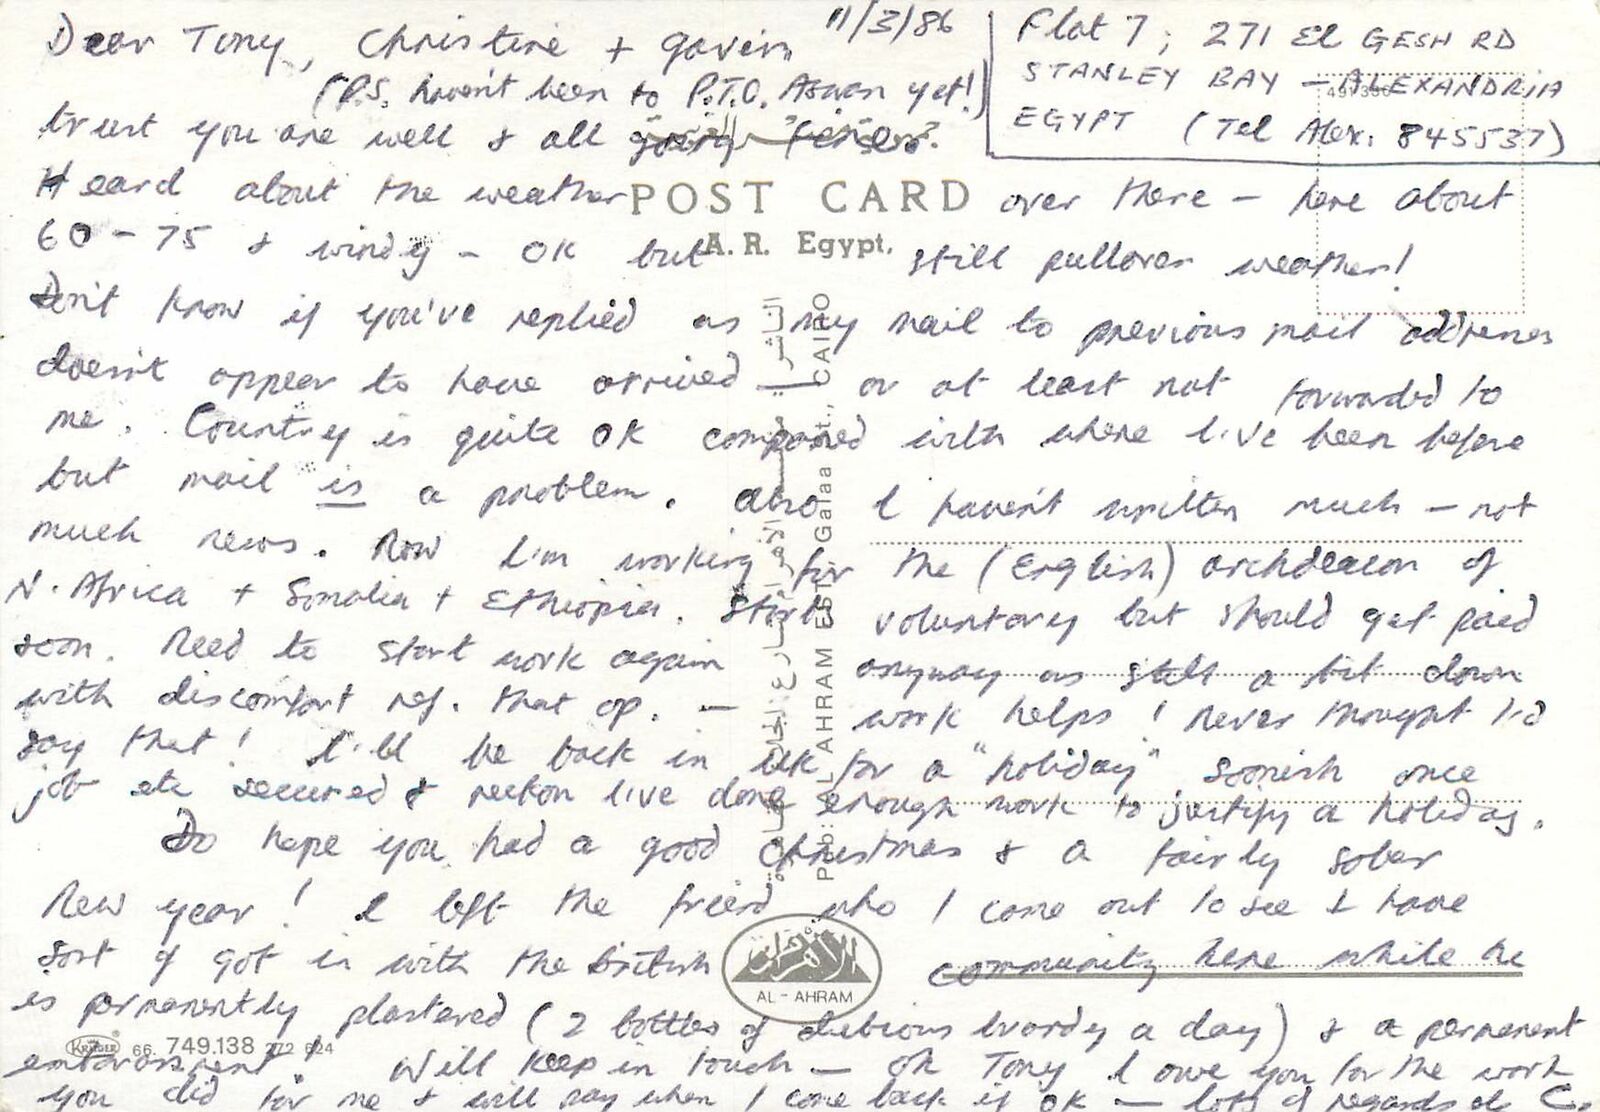 11/3/86
Flat 7, 271 El GESH RD
STANLEY BAY - ALEXANDRIA
EGYPT (Tel Alex. 845537)
Dear Tony, Christine + Gavin
(P.S. haven't been to P.T.O. Aswan yet!)
trust you are well & all
Heard about the weather over there - here about
60 - 75 & windy - OK but still pullover weather!
Don't know if you've replied as my mail to previous mail addresses
doesn't appear to have arrived - or at least not forwarded to
me. Country is quite OK compared with where I've been before
but mail is a problem. Also I haven't written much - not
much news. Now I'm working for the (English) archdeacon of
N. Africa + Somalia + Ethiopia. Start voluntary but should get paid
soon. Need to start work again anyway as still a bit down
with discomfort ref. that op. - work helps! Never thought I'd
say that! I'll be back in UK for a "holiday" soonish once
job etc secured & reckon I've done enough work to justify a holiday.
Do hope you had a good Christmas & a fairly sober
New year! I left the friend who I came out to see & have
sort of got in with the British community here while he
is permanently plastered (2 bottles of dubious brandy a day) & a permanent
embarrassment! Will keep in touch - oh Tony I owe you for the work
you did for me & will pay when I come back if OK - lots of regards C.
POST CARD
A. R. Egypt.
Pub: AL AHRAM EST Galaa st., CAIRO
الأهرام
AL-AHRAM
KRÜGER
66. 749.138 272 624